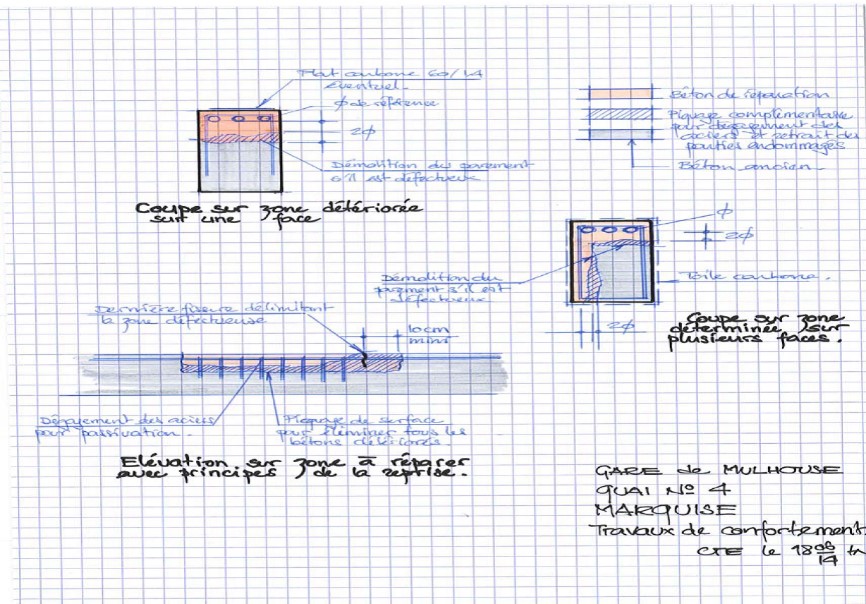 Plat carbone 60/14
éventuel.
φ de référence
2φ
Démolition du parement
s'il est défectueux
Coupe sur zone détériorée
sur une face
Béton de réparation
Piquage complémentaire
pour dégagement des
aciers et retrait des
parties endommagés
Béton ancien
φ
2φ
Démolition du
parement s'il est
défectueux
Toile carbone.
2φ
Coupe sur zone
déterminée sur
plusieurs faces.
Dernière fissure délimitant
la zone défectueuse
10cm
mini
Dégagement des aciers
pour passivation.
Piquage de surface
pour éliminer tous les
bétons détériorés.
Elévation sur zone à réparer
avec principes de la reprise.
GARE de MULHOUSE
QUAI Nº 4
MARQUISE
Travaux de confortement.
le 18
14